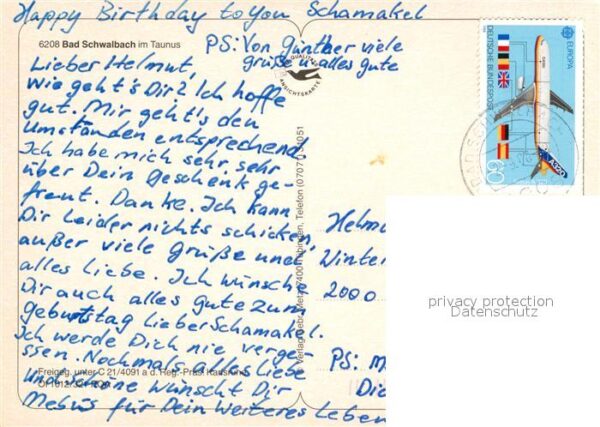 Happy Birthday to You Schamakel
6208 Bad Schwalbach im Taunus
PS: Von Günther viele
grüße & alles gute
Lieber Helmut,
wie geht's Dir? Ich hoffe
gut. Mir geht's den
Umständen entsprechend
Ich habe mich sehr sehr
über Dein Geschenk ge-
freut. Danke. Ich kann
Dir leider nichts schicken,
außer viele Grüße und
alles Liebe. Ich wünsche
Dir auch alles gute zum
geburtstag lieber Schamakel.
Ich werde Dich nie verges-
sen. Nochmals alles Liebe
und schöne wünscht Dir
für Dein weiteres Leben
Freigeg. unter C 21/4091 a d. Reg.-Präs.
QUALITÄTS
ANSICHTSKARTE
Tübingen, Telefon (0707
EUROPA
DEUTSCHE BUNDESPOST
A320
60
BAD SCHWALBACH
Helmu
Winter
2000
PS: M
Die
privacy protection
Datenschutz